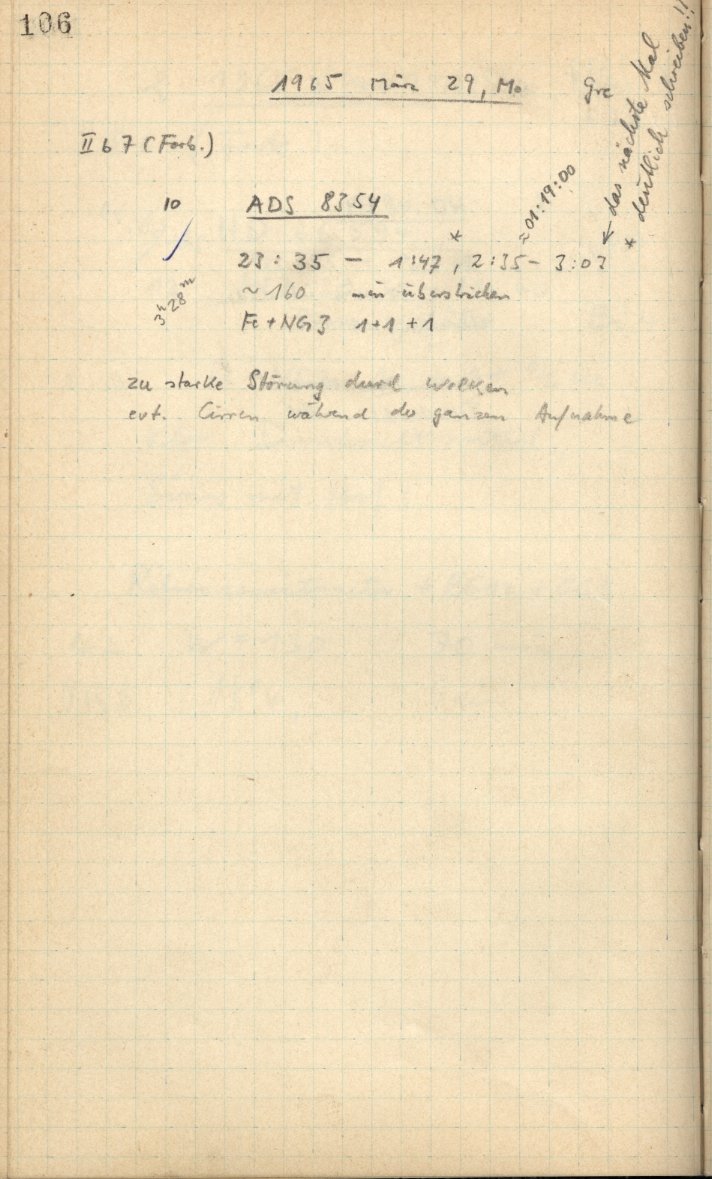 106
1965 März 29, Mo Gre
II b 7 (Farb.)
10 ADS 8354
23:35 - 1:47*, 2:35 - 3:03
≈ 01:19:00
← das nächste Mal
* deutlich schreiben!!
3h 28m
~ 160 min überstrichen
Fe + NG3 1+1+1
zu starke Störung durch Wolken
evt. Cirren während der ganzen Aufnahme